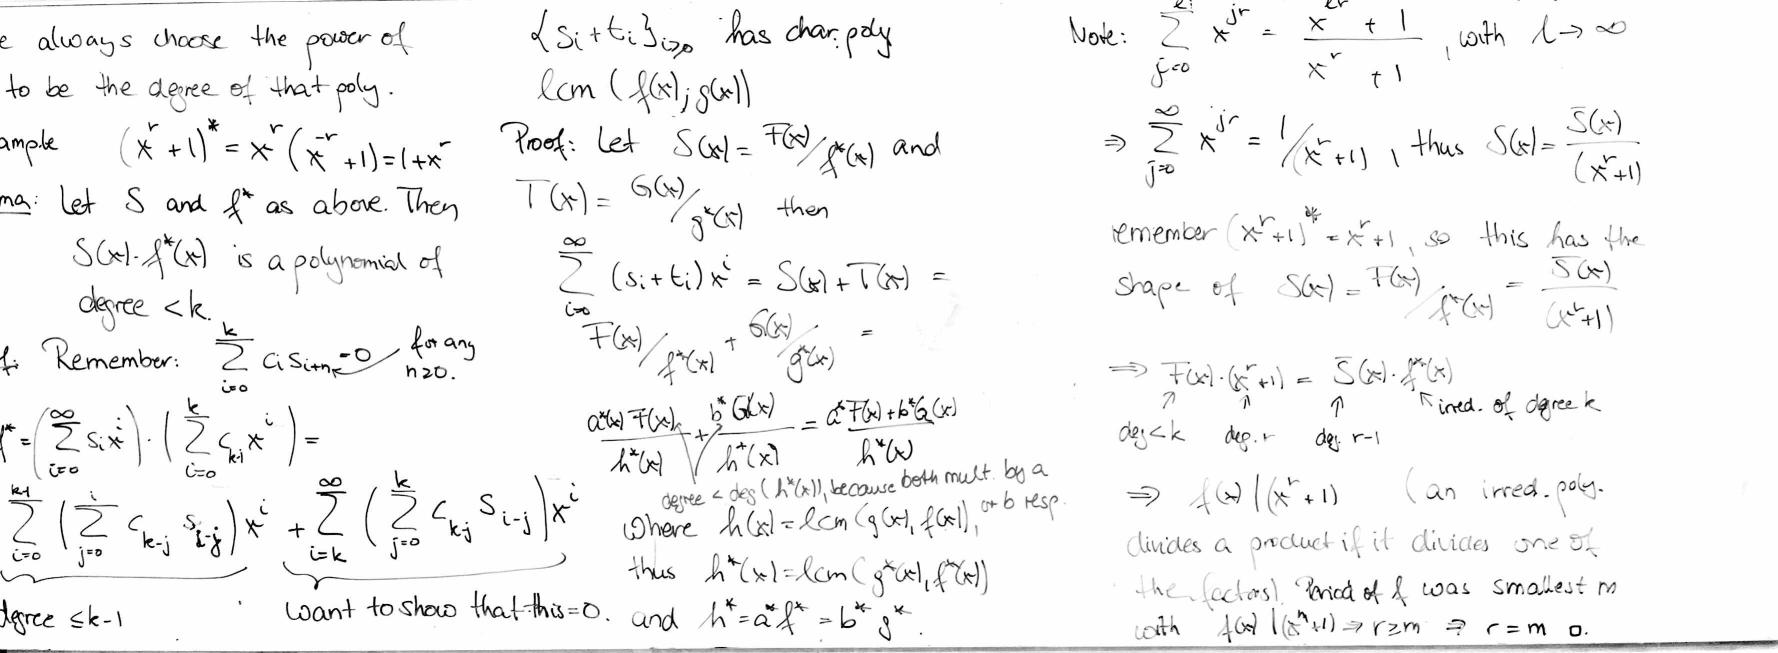 e always choose the power of
to be the degree of that poly.
ample (x^r+1)^* = x^r (x^{-r}+1) = 1+x^r
ma: Let S and f^* as above. Then
S(x)·f^*(x) is a polynomial of
degree <k.
f: Remember: \sum_{i=0}^{k} c_i s_{i+n} = 0 for any n≥0.
f^* = (\sum_{i=0}^{∞} s_i x^i) · (\sum_{i=0}^{k} c_{k-i} x^i) =
\sum_{i=0}^{k-1} (\sum_{j=0}^{i} c_{k-j} s_{i-j}) x^i + \sum_{i=k}^{∞} (\sum_{j=0}^{k} c_{k-j} s_{i-j}) x^i
degree ≤k-1 want to show that this=0.
{s_i+t_i}_{i≥0} has char. poly
lcm (f(x), g(x))
Proof: Let S(x) = F(x)/f^*(x) and
T(x) = G(x)/g^*(x) then
\sum_{i=0}^{∞} (s_i+t_i) x^i = S(x)+T(x) =
F(x)/f^*(x) + G(x)/g^*(x) =
a^*(x) F(x)/h^*(x) + b^* G(x)/h^*(x) = a^* F(x)+b^* G(x)/h^*(x)
degree < deg(h^*(x)), because both mult. by a
or b resp.
where h(x) = lcm(g(x), f(x)),
thus h^*(x) = lcm(g^*(x), f^*(x))
and h^* = a^* f^* = b^* g^*.
Note: \sum_{j=0} x^{jr} = x^{lr}+1/x^r+1, with l→∞
⇒ \sum_{j=0}^{∞} x^{jr} = 1/(x^r+1), thus S(x) = \bar{S}(x)/(x^r+1)
remember (x^r+1)^* = x^r+1, so this has the
shape of S(x) = F(x)/f^*(x) = \bar{S}(x)/(x^r+1)
⇒ F(x)·(x^r+1) = \bar{S}(x)·f^*(x)
↑ ↑ ↑ ↖ irred. of degree k
deg<k deg. r deg. r-1
⇒ f(x) | (x^r+1) (an irred. poly.
divides a product if it divides one of
the factors). Period of f was smallest m
with f(x) | (x^m+1) ⇒ r≥m ⇒ r=m □.